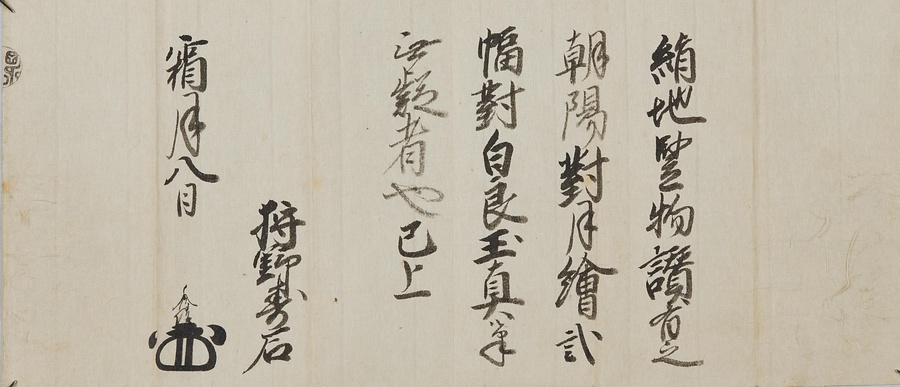 絹地竪物讃有之
朝陽對月繪貳
幅對自良玉真筆
無疑者也已上
霜月八日
狩野壽石